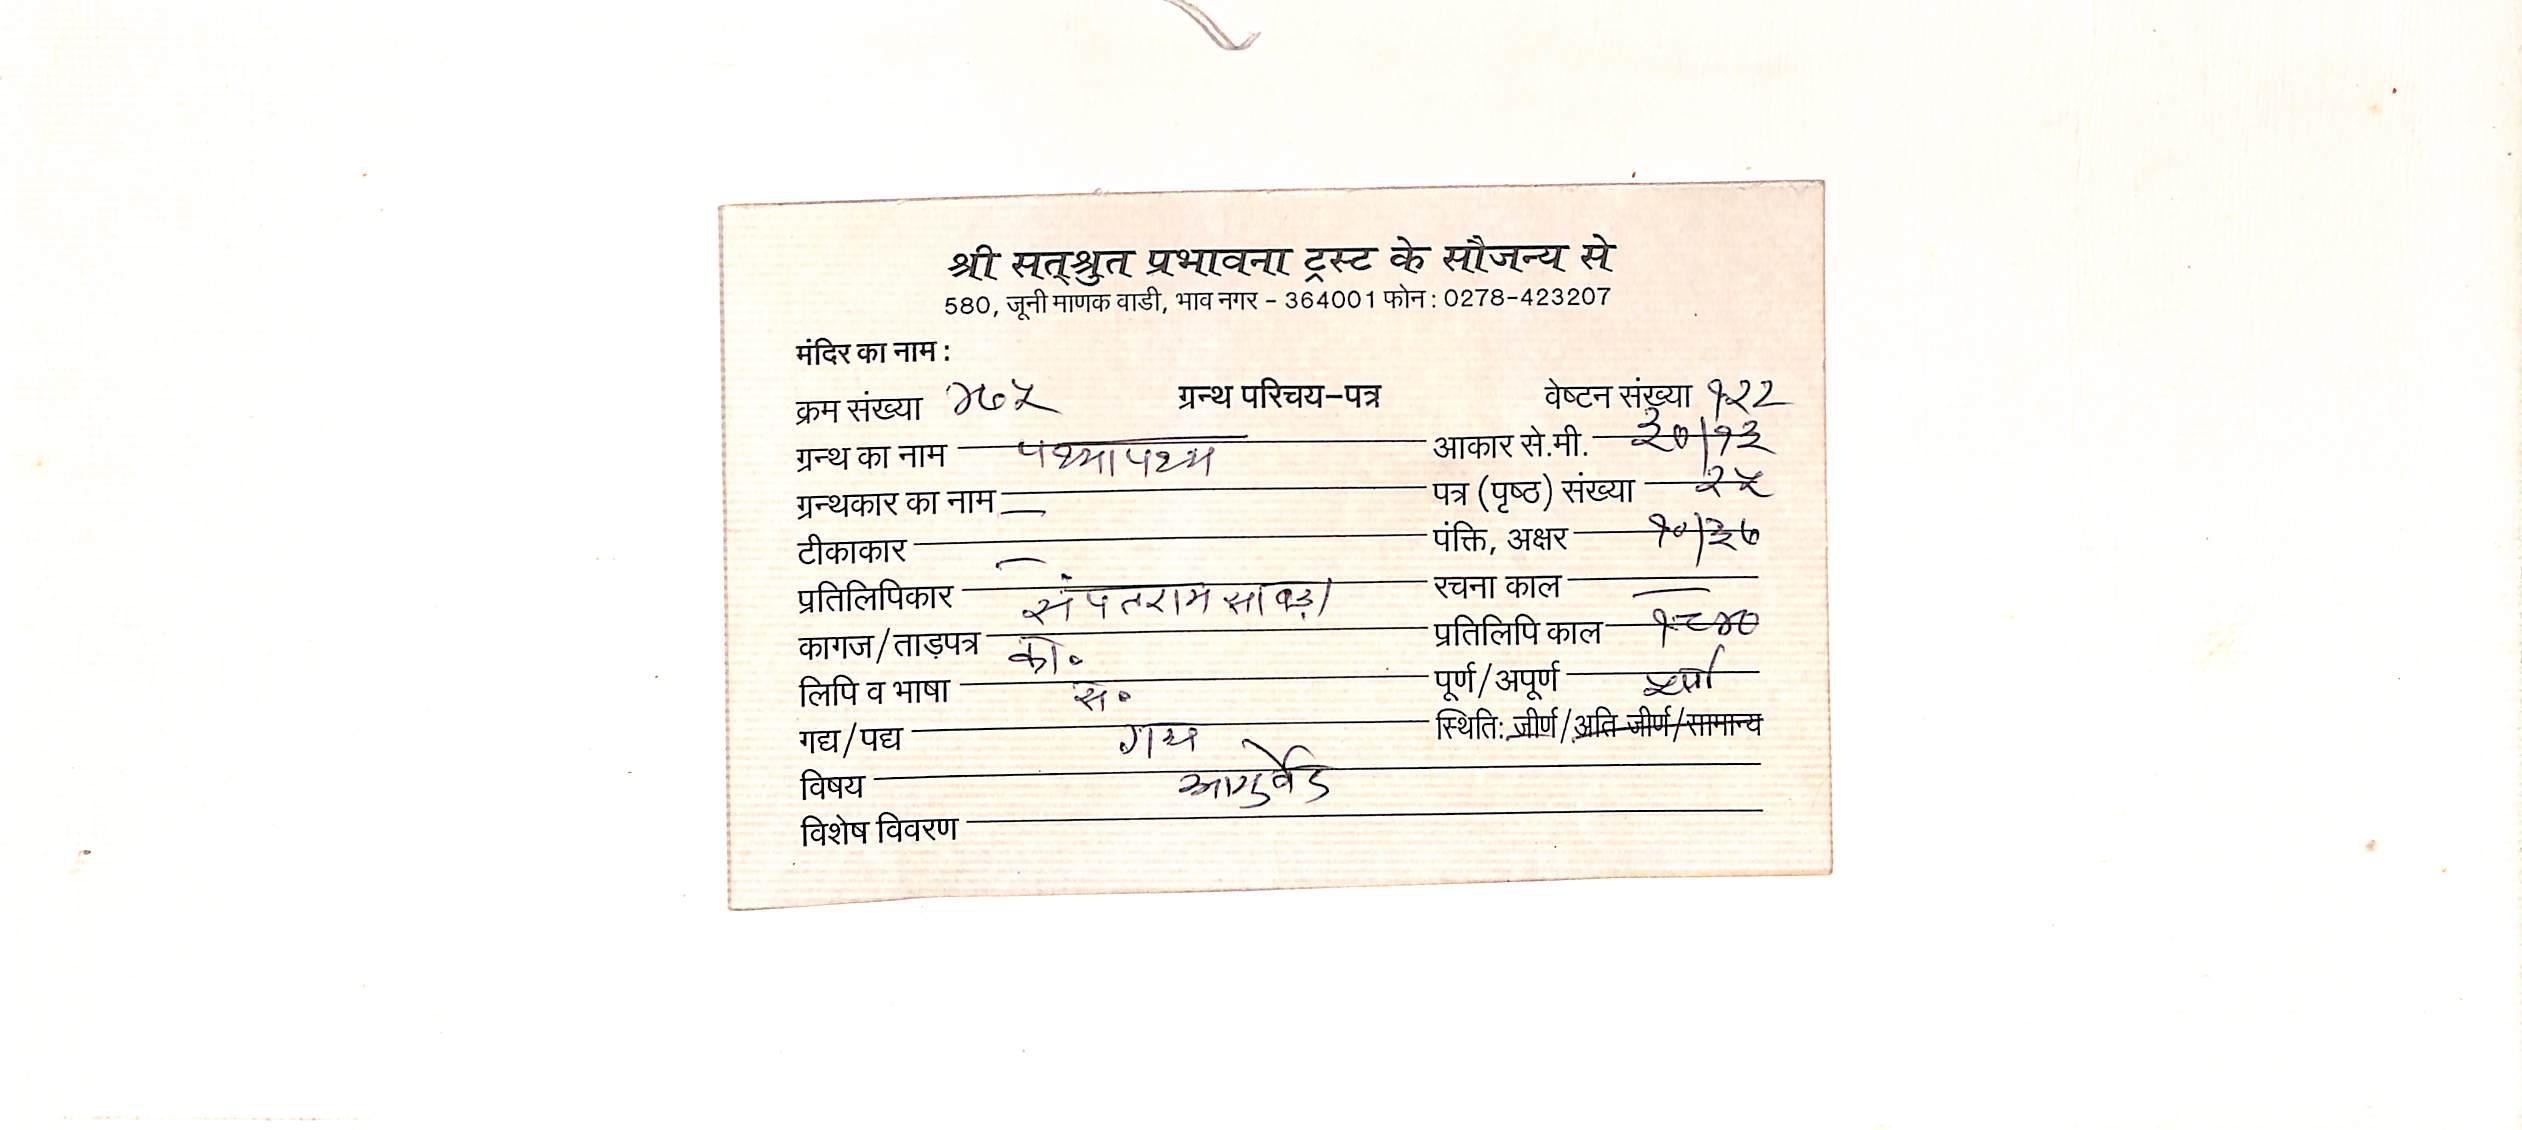 श्री सत्श्रुत प्रभावना ट्रस्ट के सौजन्य से
580, जूनी माणक वाडी, भाव नगर - 364001 फोन : 0278-423207
मंदिर का नाम :
क्रम संख्या ४७५ ग्रन्थ परिचय-पत्र वेष्टन संख्या १२२
ग्रन्थ का नाम पथ्यापथ्य आकार से.मी. ३०/१३
ग्रन्थकार का नाम — पत्र (पृष्ठ) संख्या २५
टीकाकार — पंक्ति, अक्षर १०/३७
प्रतिलिपिकार संपतराम रचना काल —
कागज/ताड़पत्र का० प्रतिलिपि काल १८४०
लिपि व भाषा स० पूर्ण/अपूर्ण पूर्ण
गद्य/पद्य गद्य स्थिति: जीर्ण/अति जीर्ण/सामान्य
विषय आयुर्वेद
विशेष विवरण